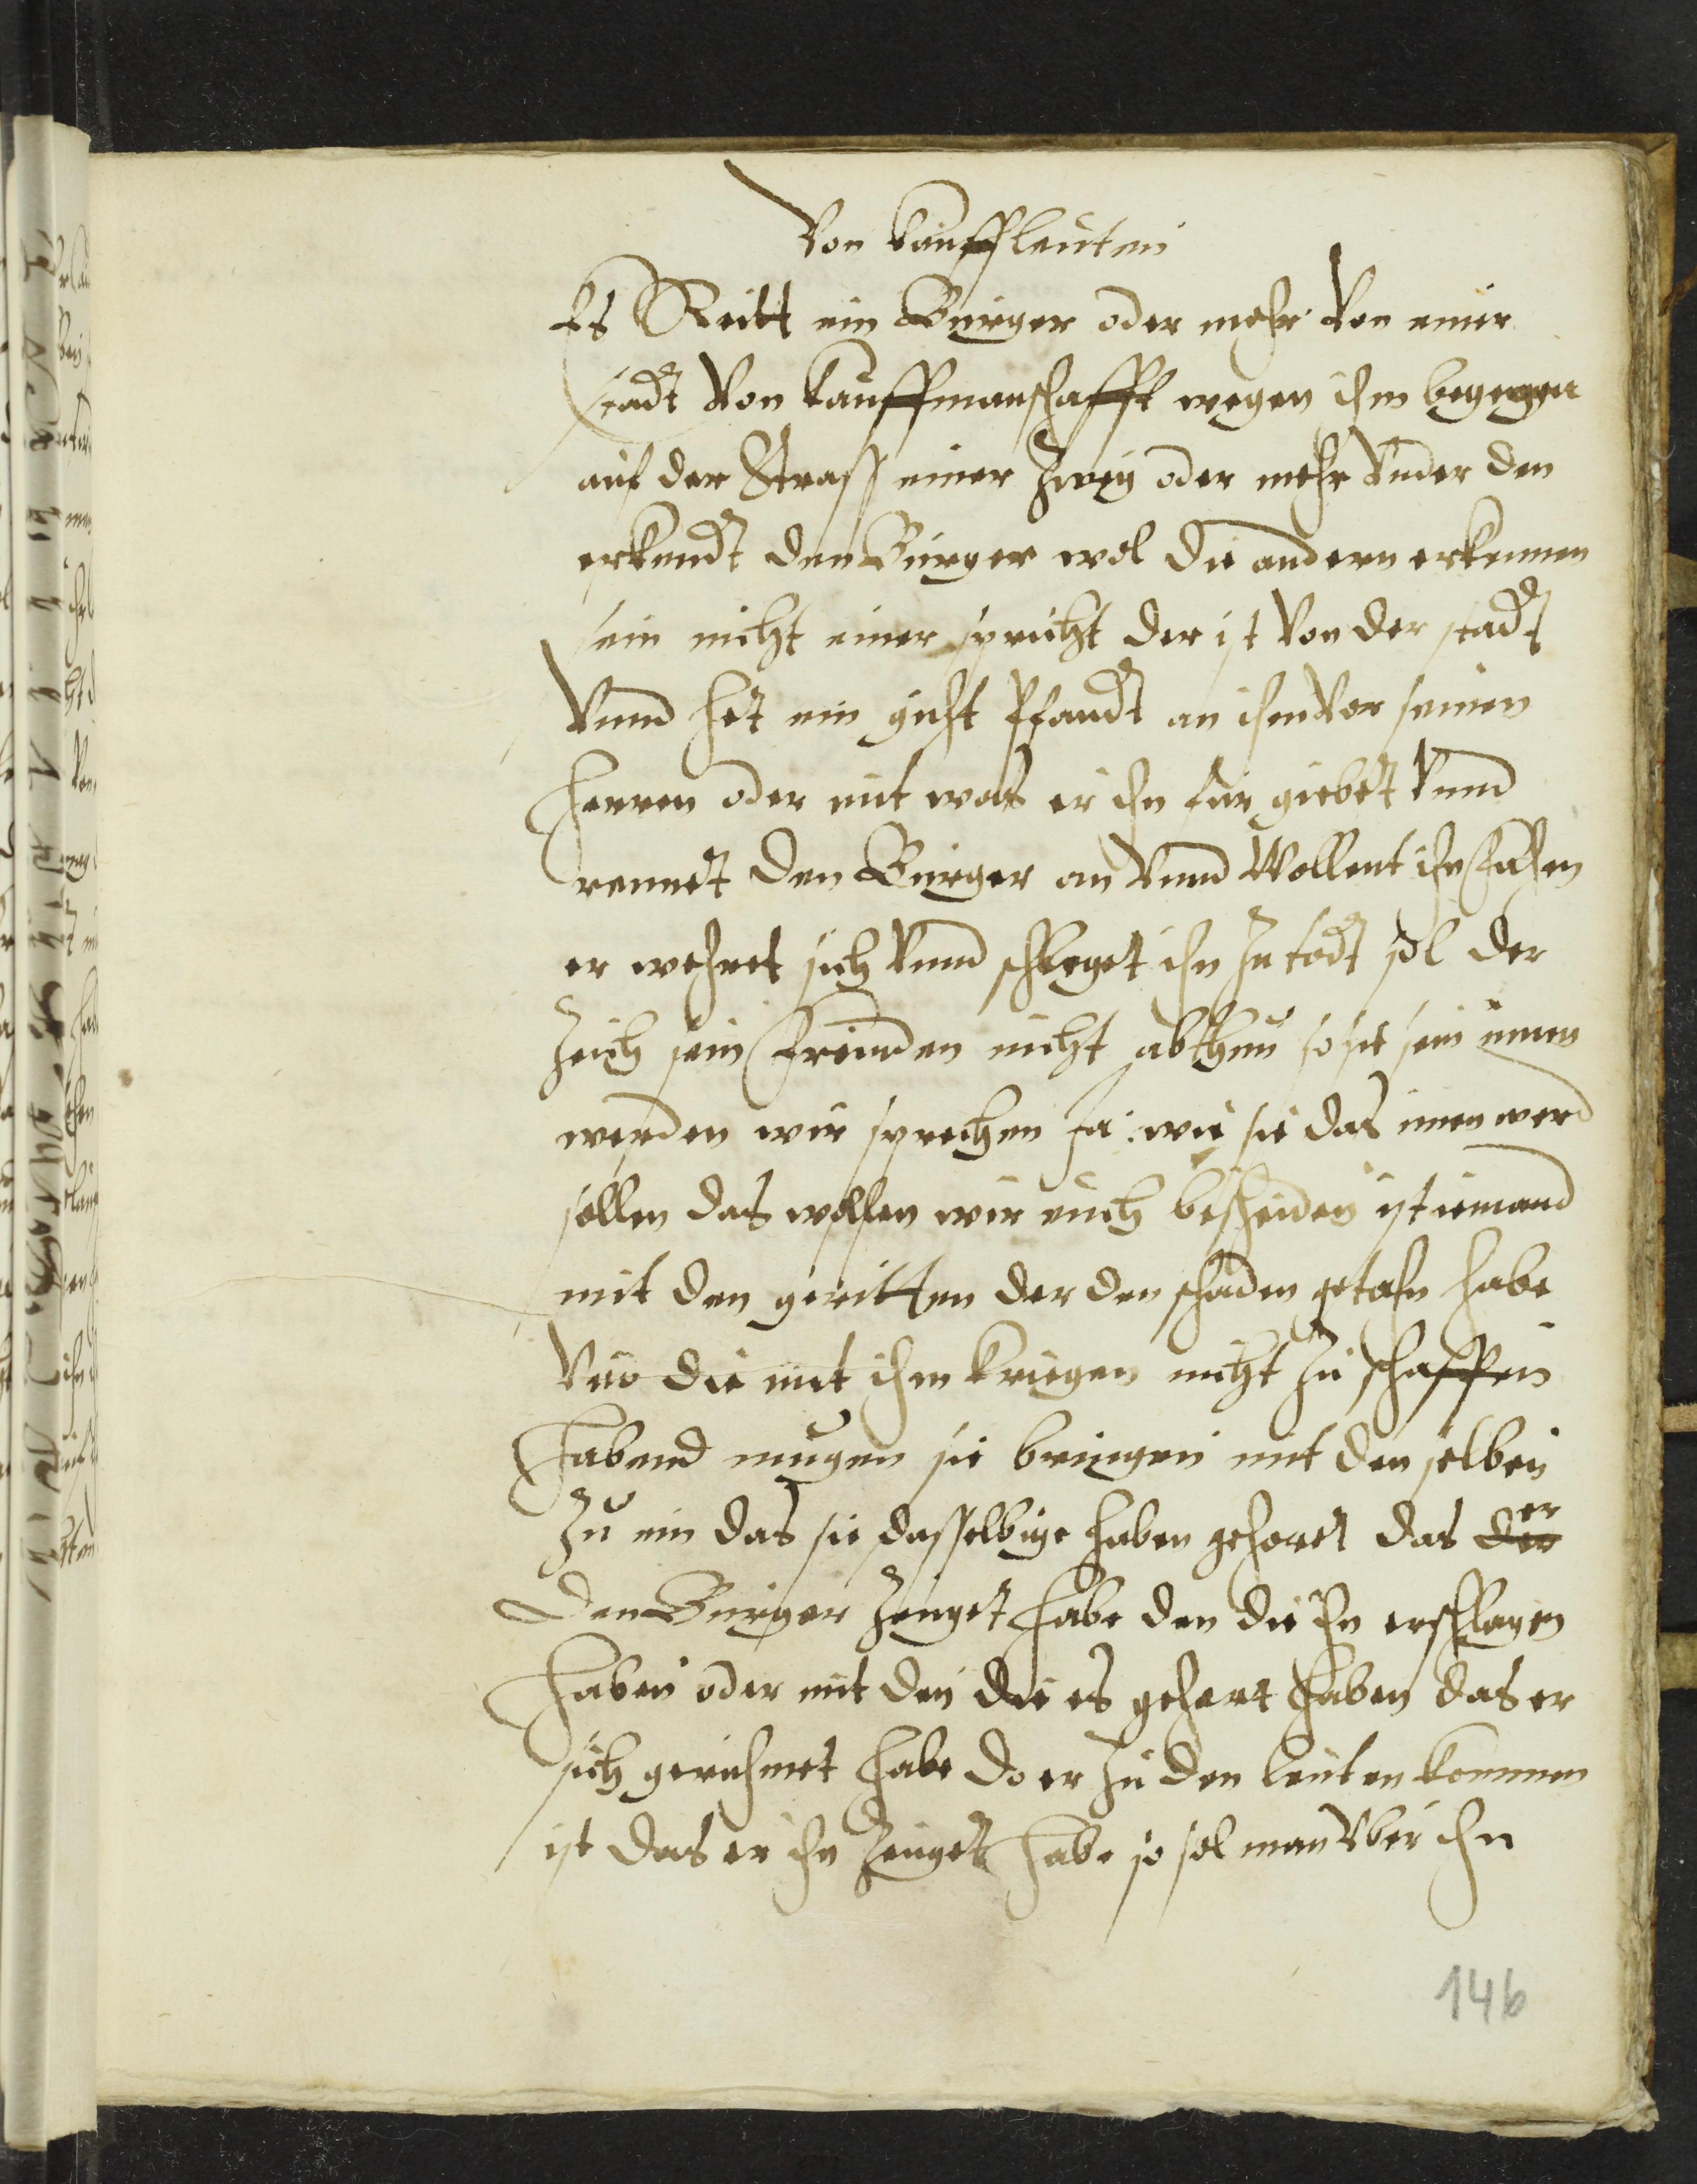 Von Kauffleuten
Es Reitt ein Burger oder mehr von einer
stadt von Kauffmanschafft wegen ihm begegen
auf der Strass einer zwey oder mehr under den
erkendt den Burger wol die andern erkennen
sein nicht einer spricht der ist von der stadt
Unnd het ein gutt Pfandt an ihm vor seinen
Herren oder mit was er ihn für giebet unnd
rennet den Burger an unnd Wollent ihn fahen
er wehret sich unnd schleget ihn zu todt sol der
Zeich sein Freunden nicht abthun so sie sein innen
werden wir sprechen ja wie sie das innen werd
sollen das wollen wir euch bescheiden ist iemand
mit den geritten der den schaden getahn habe
Und die mit ihm kriegen nicht zu schaffen
Habend mugen sie bringen mit den selben
Zu ein das sie dasselbige haben gehoret das der er
Den Burger zeuget habe den die ihn erschlagen
Haben oder mit den die es gehort haben das er
sich geruhmet habe do er zu den leuten kommen
ist das er ihn zeuget habe so sol man uber ihn
146